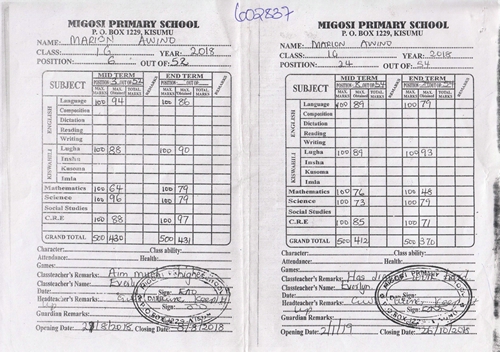 602837
MIGOSI PRIMARY SCHOOL
P. O. BOX 1229, KISUMU
NAME: MARION AWINO
CLASS: 1G YEAR: 2018
POSITION: 6 OUT OF: 52
SUBJECT MID TERM END TERM
POSITION: 3 OUT OF 52 POSITION OUT OF
MAX. MARKS MARKS Obtained TOTAL MARKS REMARKS MAX. MARKS MARKS Obtained TOTAL MARKS REMARKS
ENGLISH
Language 100 94 100 86
Composition
Dictation
Reading
Writing
KISWAHILI
Lugha 100 88 100 90
Insha
Kusoma
Imla
Mathematics 100 64 100 79
Science 100 96 100 79
Social Studies
C.R.E 100 88 100 97
GRAND TOTAL 500 430 500 431
Character: Class ability:
Attendance: Health:
Games:
Classteacher's Remarks: Aim much higher
Classteacher's Name:
Date: Sign:
Headteacher's Remarks: Keep it
up Sign:
Guardian Remarks:
Opening Date: 27/8/2018 Closing Date: 3/8/2018
MIGOSI PRIMARY SCHOOL
P. O. BOX 1229, KISUMU
NAME: MARION AWINO
CLASS: 1G YEAR: 2018
POSITION: 24 OUT OF: 54
SUBJECT MID TERM END TERM
POSITION: 8 OUT OF 54 POSITION OUT OF
MAX. MARKS MARKS Obtained TOTAL MARKS REMARKS MAX. MARKS MARKS Obtained TOTAL MARKS REMARKS
ENGLISH
Language 100 89 100 79
Composition
Dictation
Reading
Writing
KISWAHILI
Lugha 100 89 100 93
Insha
Kusoma
Imla
Mathematics 100 76 100 48
Science 100 73 100 79
Social Studies
C.R.E 100 85 100 71
GRAND TOTAL 500 412 500 370
Character: Class ability:
Attendance: Health:
Games:
Classteacher's Remarks: Has
Classteacher's Name: Evelyn
Date: Sign:
Headteacher's Remarks: Keep it
up Sign:
Guardian Remarks:
Opening Date: 2/1/19 Closing Date: 26/10/2018